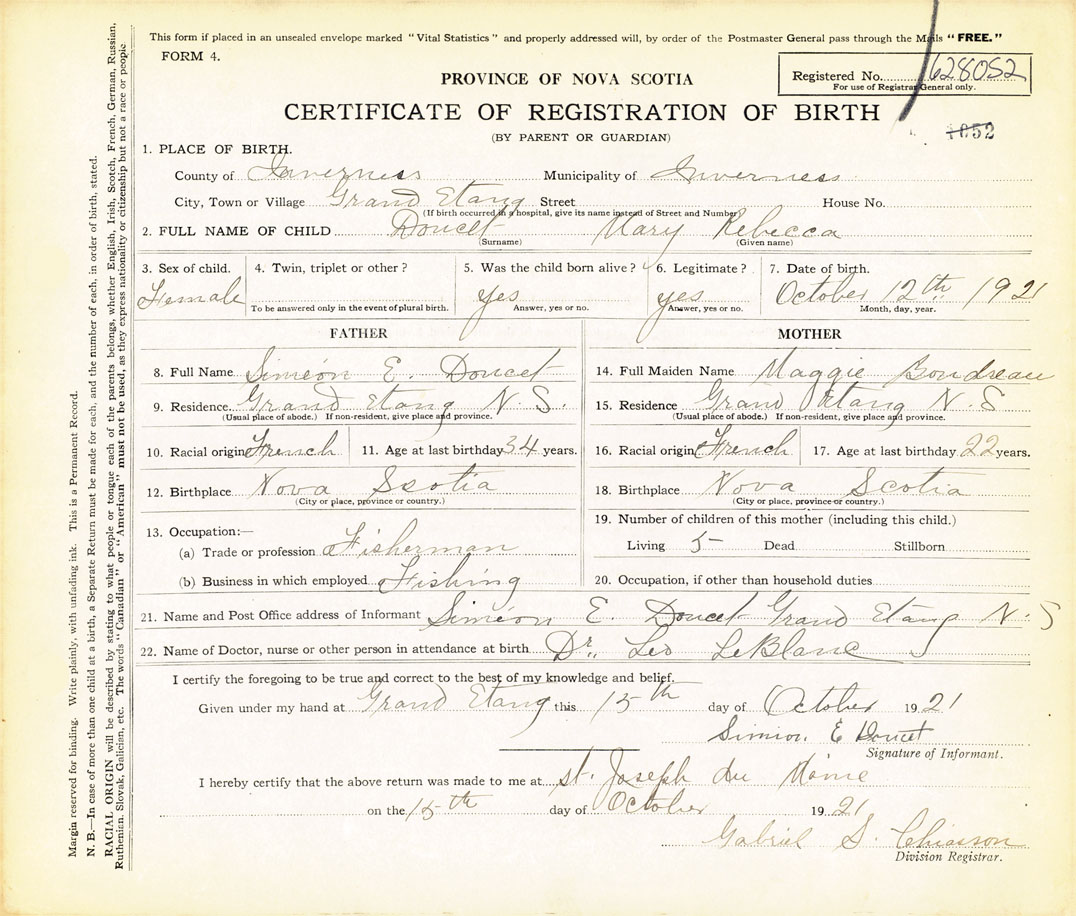 This form if placed in an unsealed envelope marked "Vital Statistics" and properly addressed will, by order of the Postmaster General pass through the Mails "FREE."
FORM 4.
PROVINCE OF NOVA SCOTIA
Registered No. 628052
For use of Registrar General only.
CERTIFICATE OF REGISTRATION OF BIRTH
(BY PARENT OR GUARDIAN)
1052
1. PLACE OF BIRTH.
County of Inverness Municipality of Inverness
City, Town or Village Grand Etang Street House No.
(If birth occurred in a hospital, give its name instead of Street and Number)
2. FULL NAME OF CHILD Doucet Mary Rebecca
(Surname) (Given name)
3. Sex of child. 4. Twin, triplet or other? 5. Was the child born alive? 6. Legitimate? 7. Date of birth.
Female yes yes October 12th 1921
To be answered only in the event of plural birth. Answer, yes or no. Answer, yes or no. Month, day, year.
FATHER MOTHER
8. Full Name Siméon E. Doucet 14. Full Maiden Name Maggie Boudreau
9. Residence Grand Etang N. S. 15. Residence Grand Etang N. S
(Usual place of abode.) If non-resident, give place and province. (Usual place of abode.) If non-resident, give place and province.
10. Racial origin French 11. Age at last birthday 34 years. 16. Racial origin French 17. Age at last birthday 22 years.
12. Birthplace Nova Scotia 18. Birthplace Nova Scotia
(City or place, province or country.) (City or place, province or country.)
13. Occupation:— 19. Number of children of this mother (including this child.)
(a) Trade or profession Fisherman Living 5 Dead Stillborn
(b) Business in which employed Fishing 20. Occupation, if other than household duties
21. Name and Post Office address of Informant Siméon E. Doucet Grand Etang N. S
22. Name of Doctor, nurse or other person in attendance at birth Dr. Leo LeBlanc
I certify the foregoing to be true and correct to the best of my knowledge and belief.
Given under my hand at Grand Etang this 15th day of October 1921
Simion E Doucet
Signature of Informant.
I hereby certify that the above return was made to me at St. Joseph du Moine
on the 15th day of October 1921
Gabriel S. Chiasson
Division Registrar.
Margin reserved for binding. Write plainly, with unfading ink. This is a Permanent Record.
N. B.—In case of more than one child at a birth, a Separate Return must be made for each, and the number of each, in order of birth, stated.
RACIAL ORIGIN will be described by stating to what people or tongue each of the parents belongs, whether English, Irish, Scotch, French, German, Russian,
Ruthenian, Slovak, Galician, etc. The words "Canadian" or "American" must not be used, as they express nationality or citizenship but not a race or people